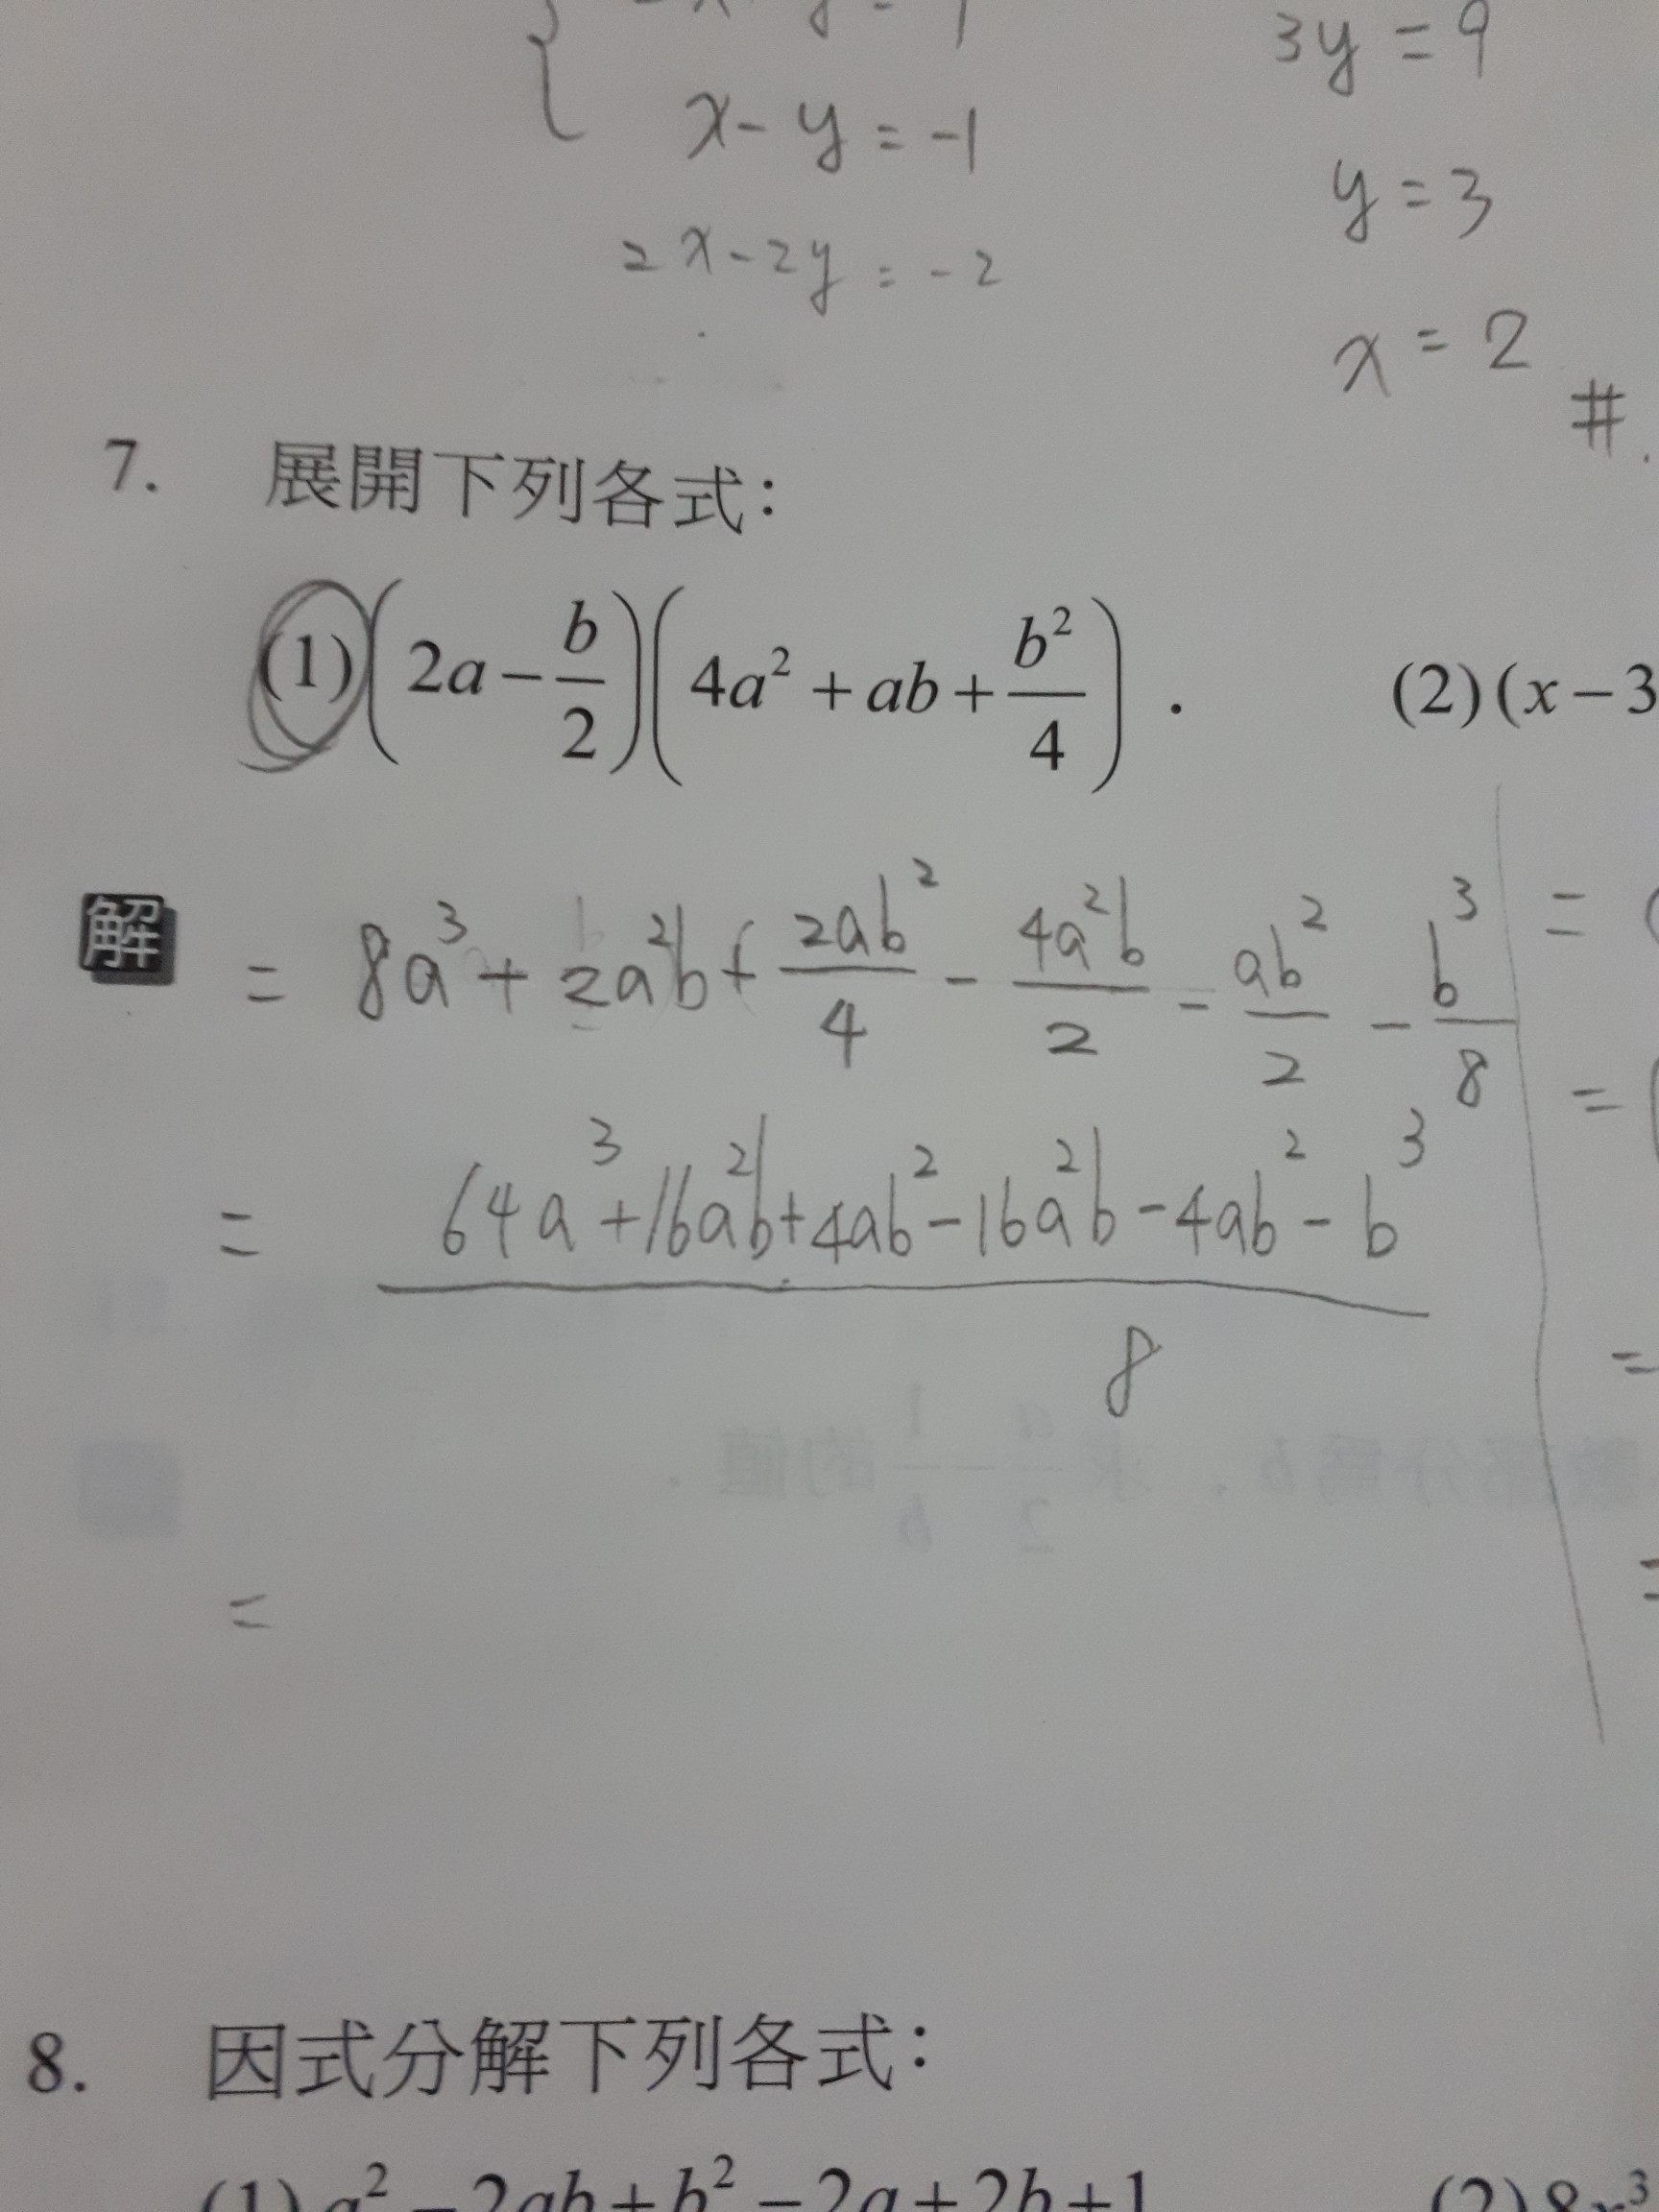 x - y = -1
3y = 9
x - y = -1
y = 3
2x - 2y = -2
x = 2
#.
7. 展開下列各式：
(1) (2a - b/2)(4a² + ab + b²/4) . (2) (x - 3
解 = 8a³ + 2a²b + 2ab²/4 - 4a²b/2 - ab²/2 - b³/8 =
=
= (64a³ + 16a²b + 4ab² - 16a²b - 4ab² - b³)/8
=
=
8. 因式分解下列各式：
(1) a² - 2ab + b² - 2a + 2b + 1 (2) 8x³